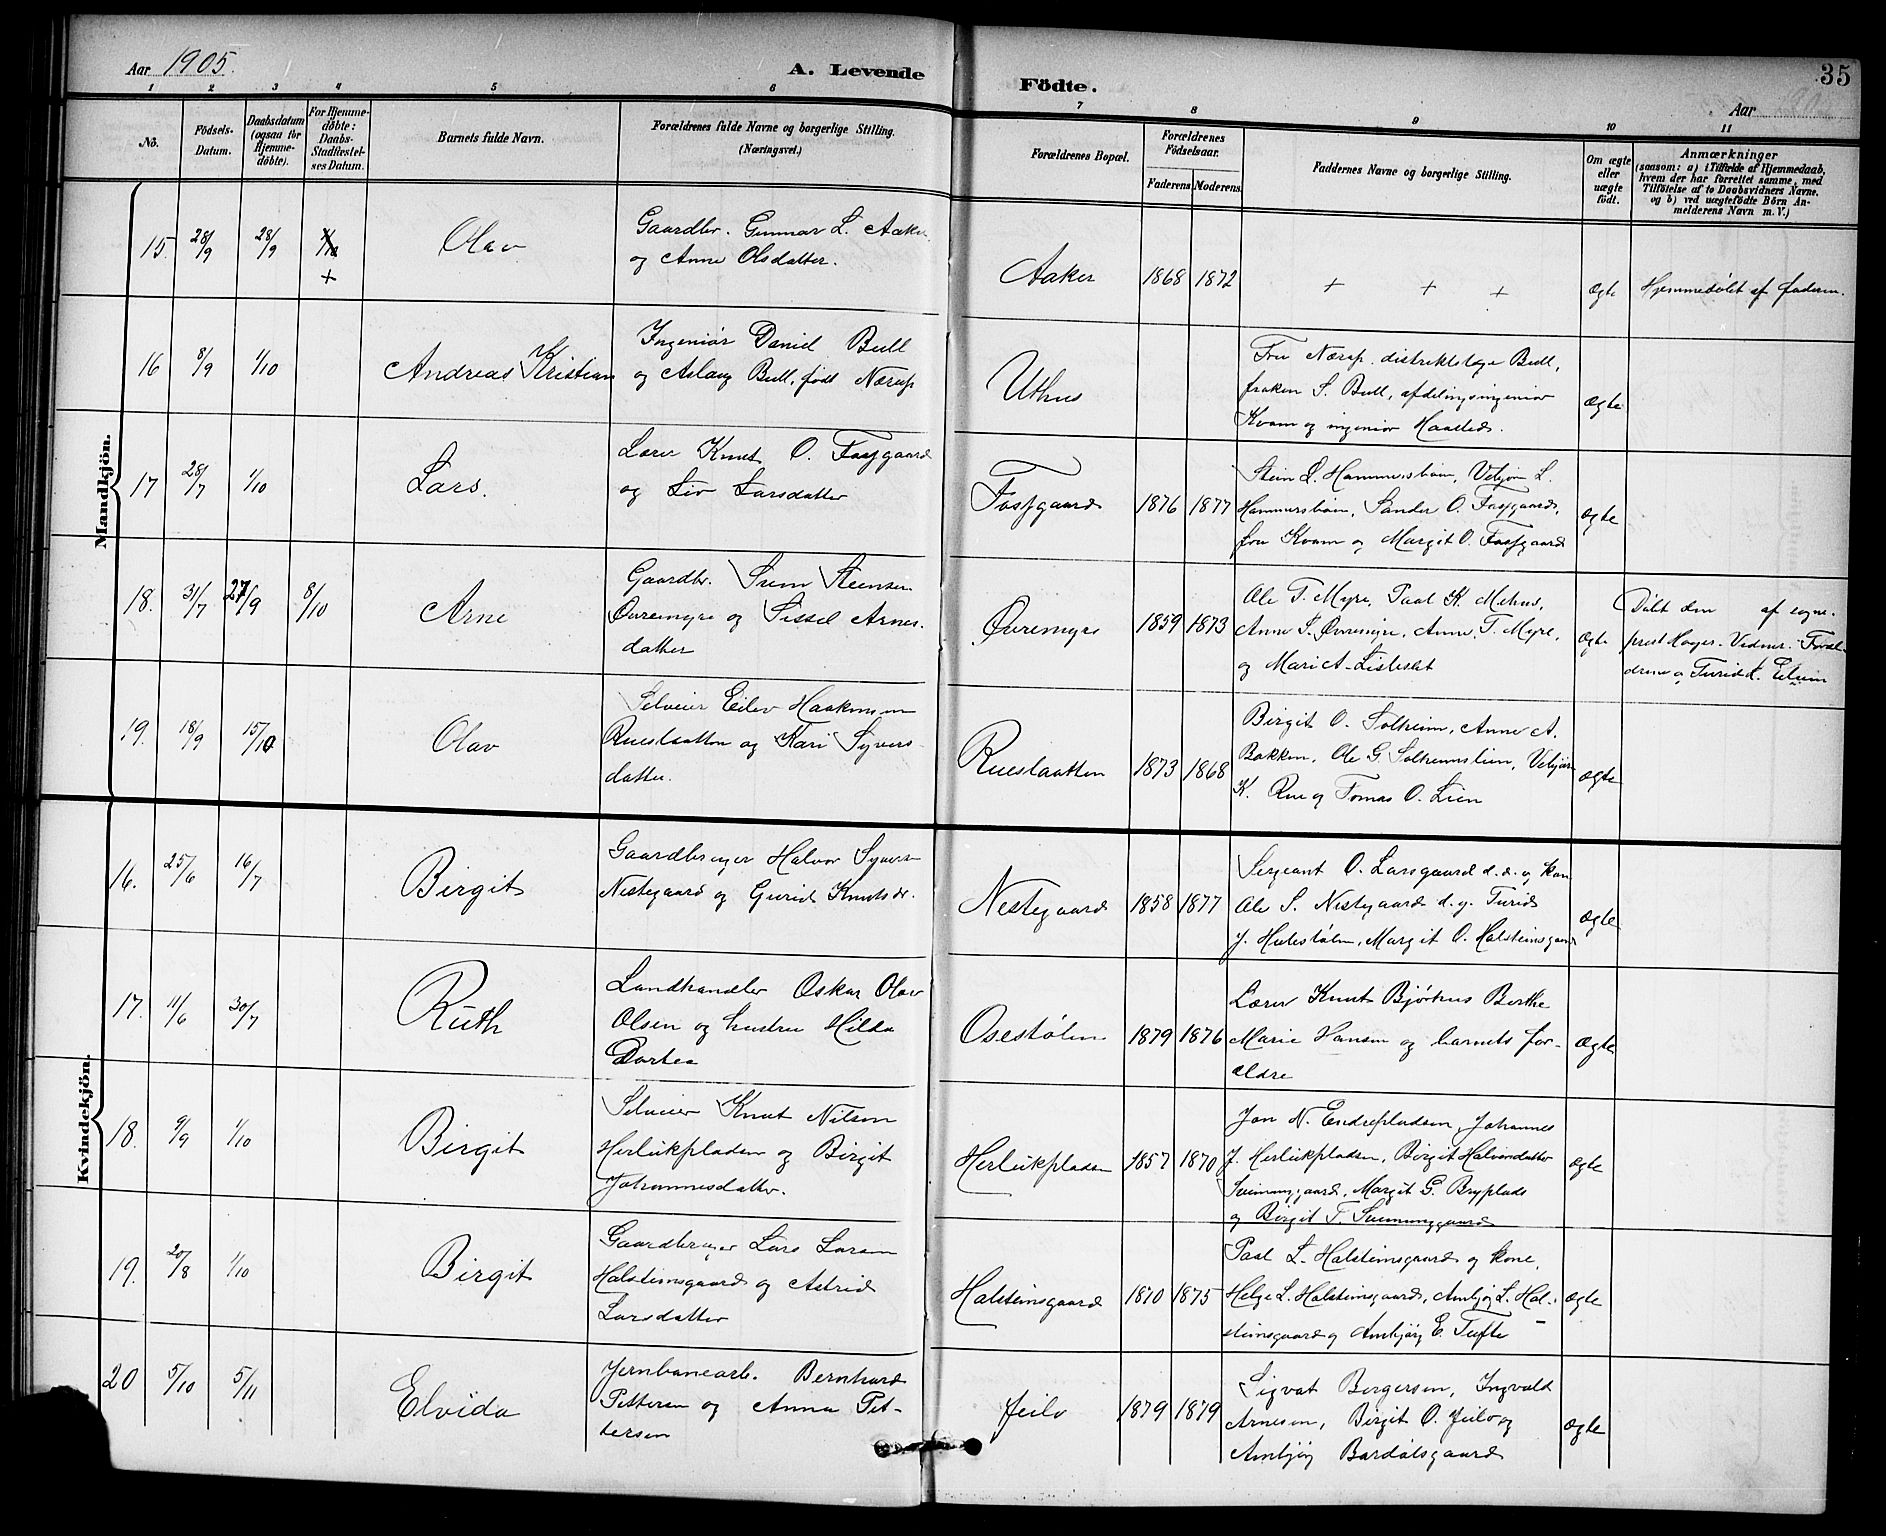 Aar 1905.
A. Levende
Födte.
35
Aar
1 2 3 4 5 6 7 8 9 10 11
No.
Födsels-Datum.
Daabsdatum (ogsaa for Hjemme-döbte).
For Hjemme-döbte: Daabs-Stadfæstel-ses Datum.
Barnets fulde Navn.
Forældrenes fulde Navne og borgerlige Stilling. (Næringsvei.)
Forældrenes Bopæl.
Forældrenes Födselsaar.
Faderens Moderens
Faddernes Navne og borgerlige Stilling.
Om ægte eller uægte födt.
Anmærkninger
(saasom: a) i Tilfælde af Hjemmedaab, hvem der har forrettet samme, med Tilföielse af to Daabsvidners Navne, og b) ved uægtefödte Börn An-melderens Navn m. V.)
Mandkjön.
15. 28/9 28/9 + Olav
Gaardbr. Gunnar L. Aaker
og Anne Olsdatter.
Aaker 1868 1872 + + + Ægte Hjemmedøbt af faderen.
16 8/9 1/10 Andreas Kristian
Ingeniør Daniel Bull
og Aslaug Bull, født Nærup
Uthus
Fru Nærup, distriktslæge Bull,
frøken S. Bull, afdelingsingeniør
Kvam og ingeniør Haarseth.
Ægte
17 28/7 1/10 Lars.
Lærer Knut O. Fossgaard
og Liv Larsdatter
Fossgaard 1876 1877
Stein L. Hammersbøen, Vebjørn L.
Hammersbøen, Sander O. Fossgaard,
fru Kvam og Margit O. Fossgaard
ægte
18. 31/7 27/9 8/10 Arne
Gaardbr. Svein Steinsen
Øvremyre og Sissel Arnes-
datter
Øvremyre 1859 1873
Ole T. Myre, Paal K. Mehus,
Anne S. Øvremyre, Anne T. Myre,
og Mari A. Listeslet
ægte
Døbt den af sogne-
prest Høyer. Vidner: Foræl-
drene og Turid L. Eileim
19. 18/9 15/10 Olav
Selveier Eilev Haakonsen
Rueslaatten og Kari Syvers-
datter.
Rueslaatten 1873 1868
Birgit O. Solheim, Anne A.
Bakken, Ole G. Solheimslien, Vebjørn
K. Rue og Tomas O. Lien
ægte
Kvindekjön.
16. 25/6 16/7 Birgit
Gaardbruger Halvor Syvers.
Nestegaard og Gurid Knutsdr.
Nestegaard 1858 1877
Sergeant O. Larsgaard d. æ. og kone
Ole S. Nestegaard d. y. Turid
J. Hulestølen, Margit O. Halsteinsgaard
ægte
17. 11/6 30/7 Ruth
Landhandler Oskar Olav
Olsen og hustru Hilda
Dortea
Osestølen 1879 1876
Lærer Knut Bjørhus Berthe
Marie Hansen og barnets for-
ældre
Ægte
18. 9/9 1/10 Birgit
Selveier Knut Nilsen
Herleikpladsen og Birgit
Johannesdatter.
Herleikpladsen 1857 1870
Jon N. Endrepladsen, Johannes
J. Herleikpladsen, Birgit Halvorsdatter
Sveinunggaard, Margit G. Bryplads
og Birgit T. Sveinunggaard
ægte
19. 20/8 1/10 Birgit
Gaardbruger Lars Larsen
Halsteinsgaard og Astrid
Larsdatter
Halsteinsgaard 1870 1875
Paal L. Halsteinsgaard og kone,
Helge L. Halsteinsgaard, Ambjør L. Hal-
steinsgaard og Ambjørg E. Tufte
ægte
20 5/10 5/11 Elvida
Jernbanearb. Bernhard
Pettersen og Anna Pet-
tersen
Jeilo 1879 1879
Sigvat Borgersen, Ingvald
Arnesen, Birgit O. Jeilo og
Ambjør Bardølsgaard
ægte